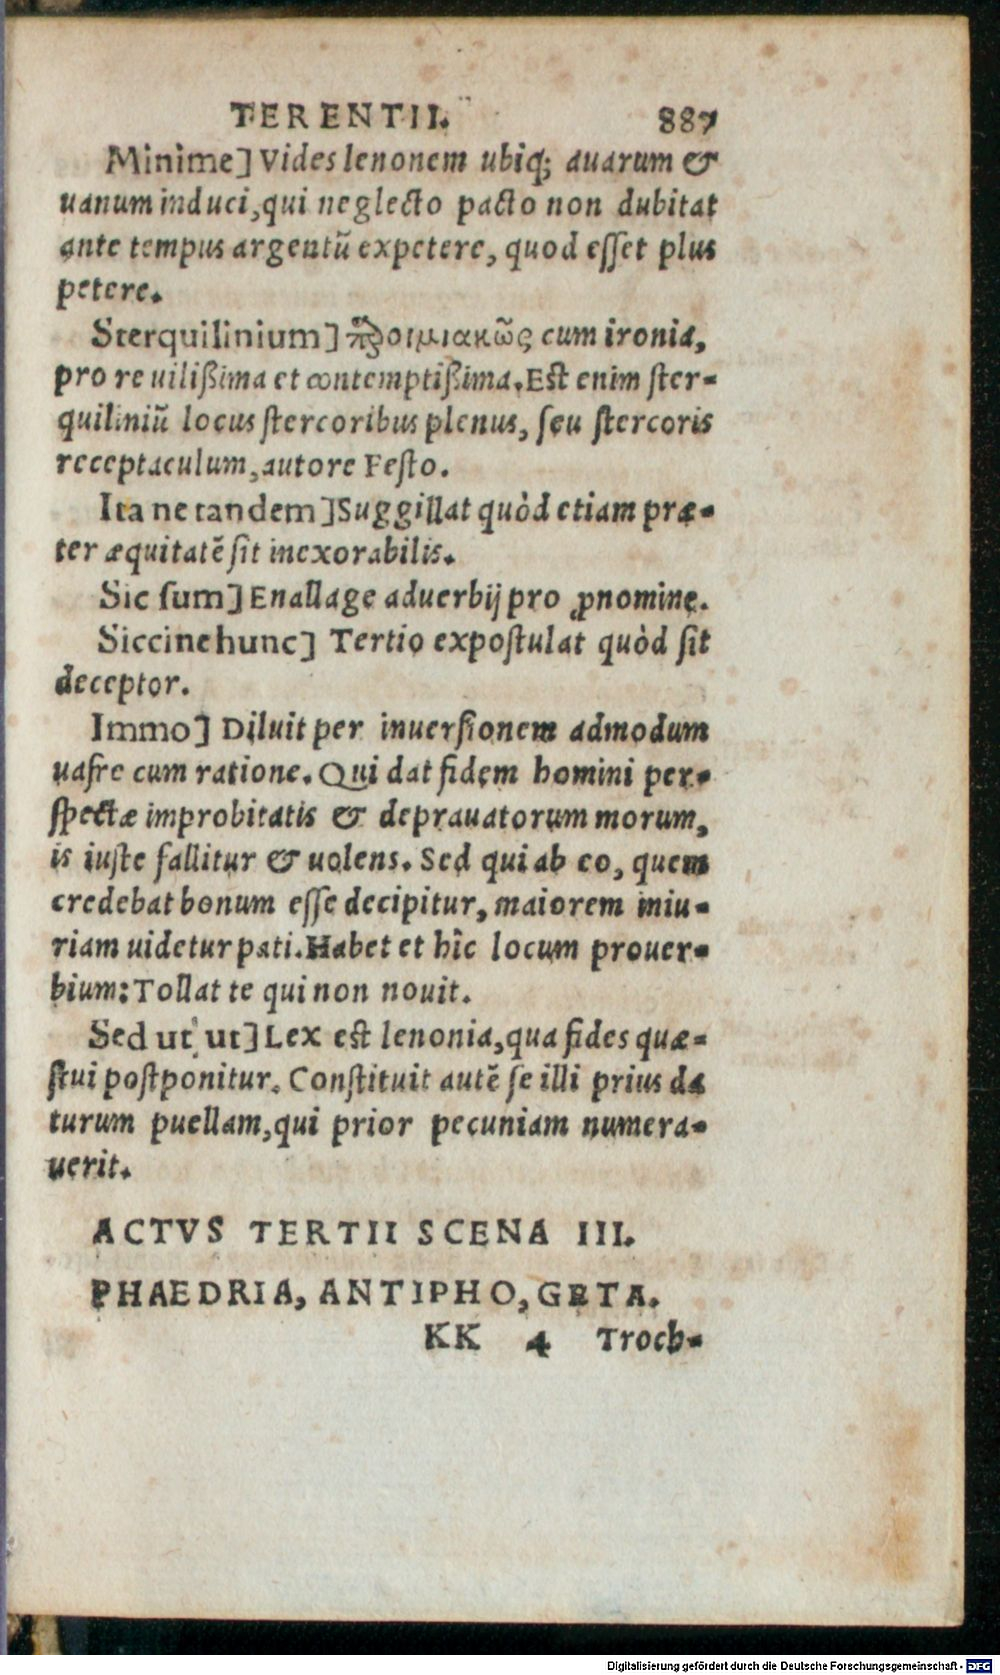 TERENTII. 887
Minime] Vides lenonem ubiq; auarum &
uanum induci, qui neglecto pacto non dubitat
ante tempus argentũ expetere, quod esset plus
petere.
Sterquilinium] παροιμιακῶς cum ironia,
pro re uilißima et contemptißima. Est enim ster-
quiliniũ locus stercoribus plenus, seu stercoris
receptaculum, autore Festo.
Ita ne tandem] Suggillat quòd etiam præ-
ter æquitatẽ sit inexorabilis.
Sic sum] Enallage aduerbij pro ꝓnomine.
Siccine hunc] Tertio expostulat quòd sit
deceptor.
Immo] Diluit per inuersionem admodum
uafre cum ratione. Qui dat fidem homini per-
spectæ improbitatis & deprauatorum morum,
is iuste fallitur & uolens. Sed qui ab eo, quem
credebat bonum esse decipitur, maiorem iniu-
riam uidetur pati. Habet et hîc locum prouer-
bium: Tollat te qui non nouit.
Sed ut ut] Lex est lenonia, qua fides quæ-
stui postponitur. Constituit autẽ se illi prius da
turum puellam, qui prior pecuniam numera-
uerit.
ACTVS TERTII SCENA III.
PHAEDRIA, ANTIPHO, GETA.
KK 4 Troch-
Digitalisierung gefördert durch die Deutsche Forschungsgemeinschaft - DFG